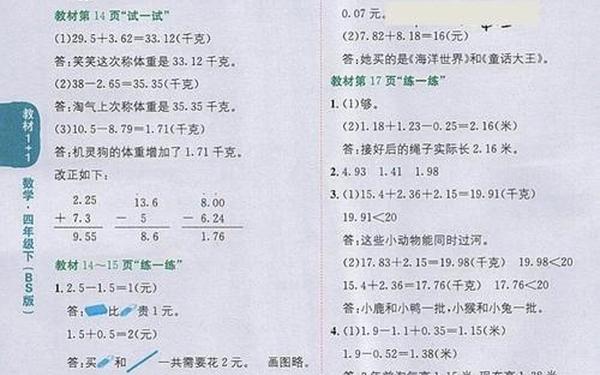 教材第14页“试一试”
(1)29.5+3.62=33.12(千克)
答:笑笑这次称体重是33.12千克。
(2)38-2.65=35.35(千克)
答:淘气上次称体重是35.35千克。
(3)10.5-8.79=1.71(千克)
答:机灵狗的体重增加了1.71千克。
改正如下:
2.25 13.6 8.00
+ 7.3 - 5 - 6.24
9.55 8.6 1.76
教材14～15页“练一练”
1.2.5-1.5=1(元)
答:比贵1元。
1.5+0.5=2(元)
答:买和一共需要花2元。 画图略。
教材1+1
数学·四年级下(BS版)
0.07元。
(2)7.82+8.18=16(元)
答:她买的是《海洋世界》和《童话大王》。
教材第17页“练一练”
1.(1)够。
(2)1.18+1.23-0.25=2.16(米)
答:接好后的绳子实际长2.16米。
2.4.93 1.41 1.98
3.(1)15.4+2.36+2.15=19.91(千克)
19.91<20
答:这些小动物能同时过河。
(2)17.83+2.15=19.98(千克) 19.98<20
15.4+2.36=17.76(千克) 17.76<20
答:小鹿和小鸭一批,小猴和小兔一批。
4.(1)1.9-1.1+0.35=1.15(米)
1.9-0.52=1.38(米)